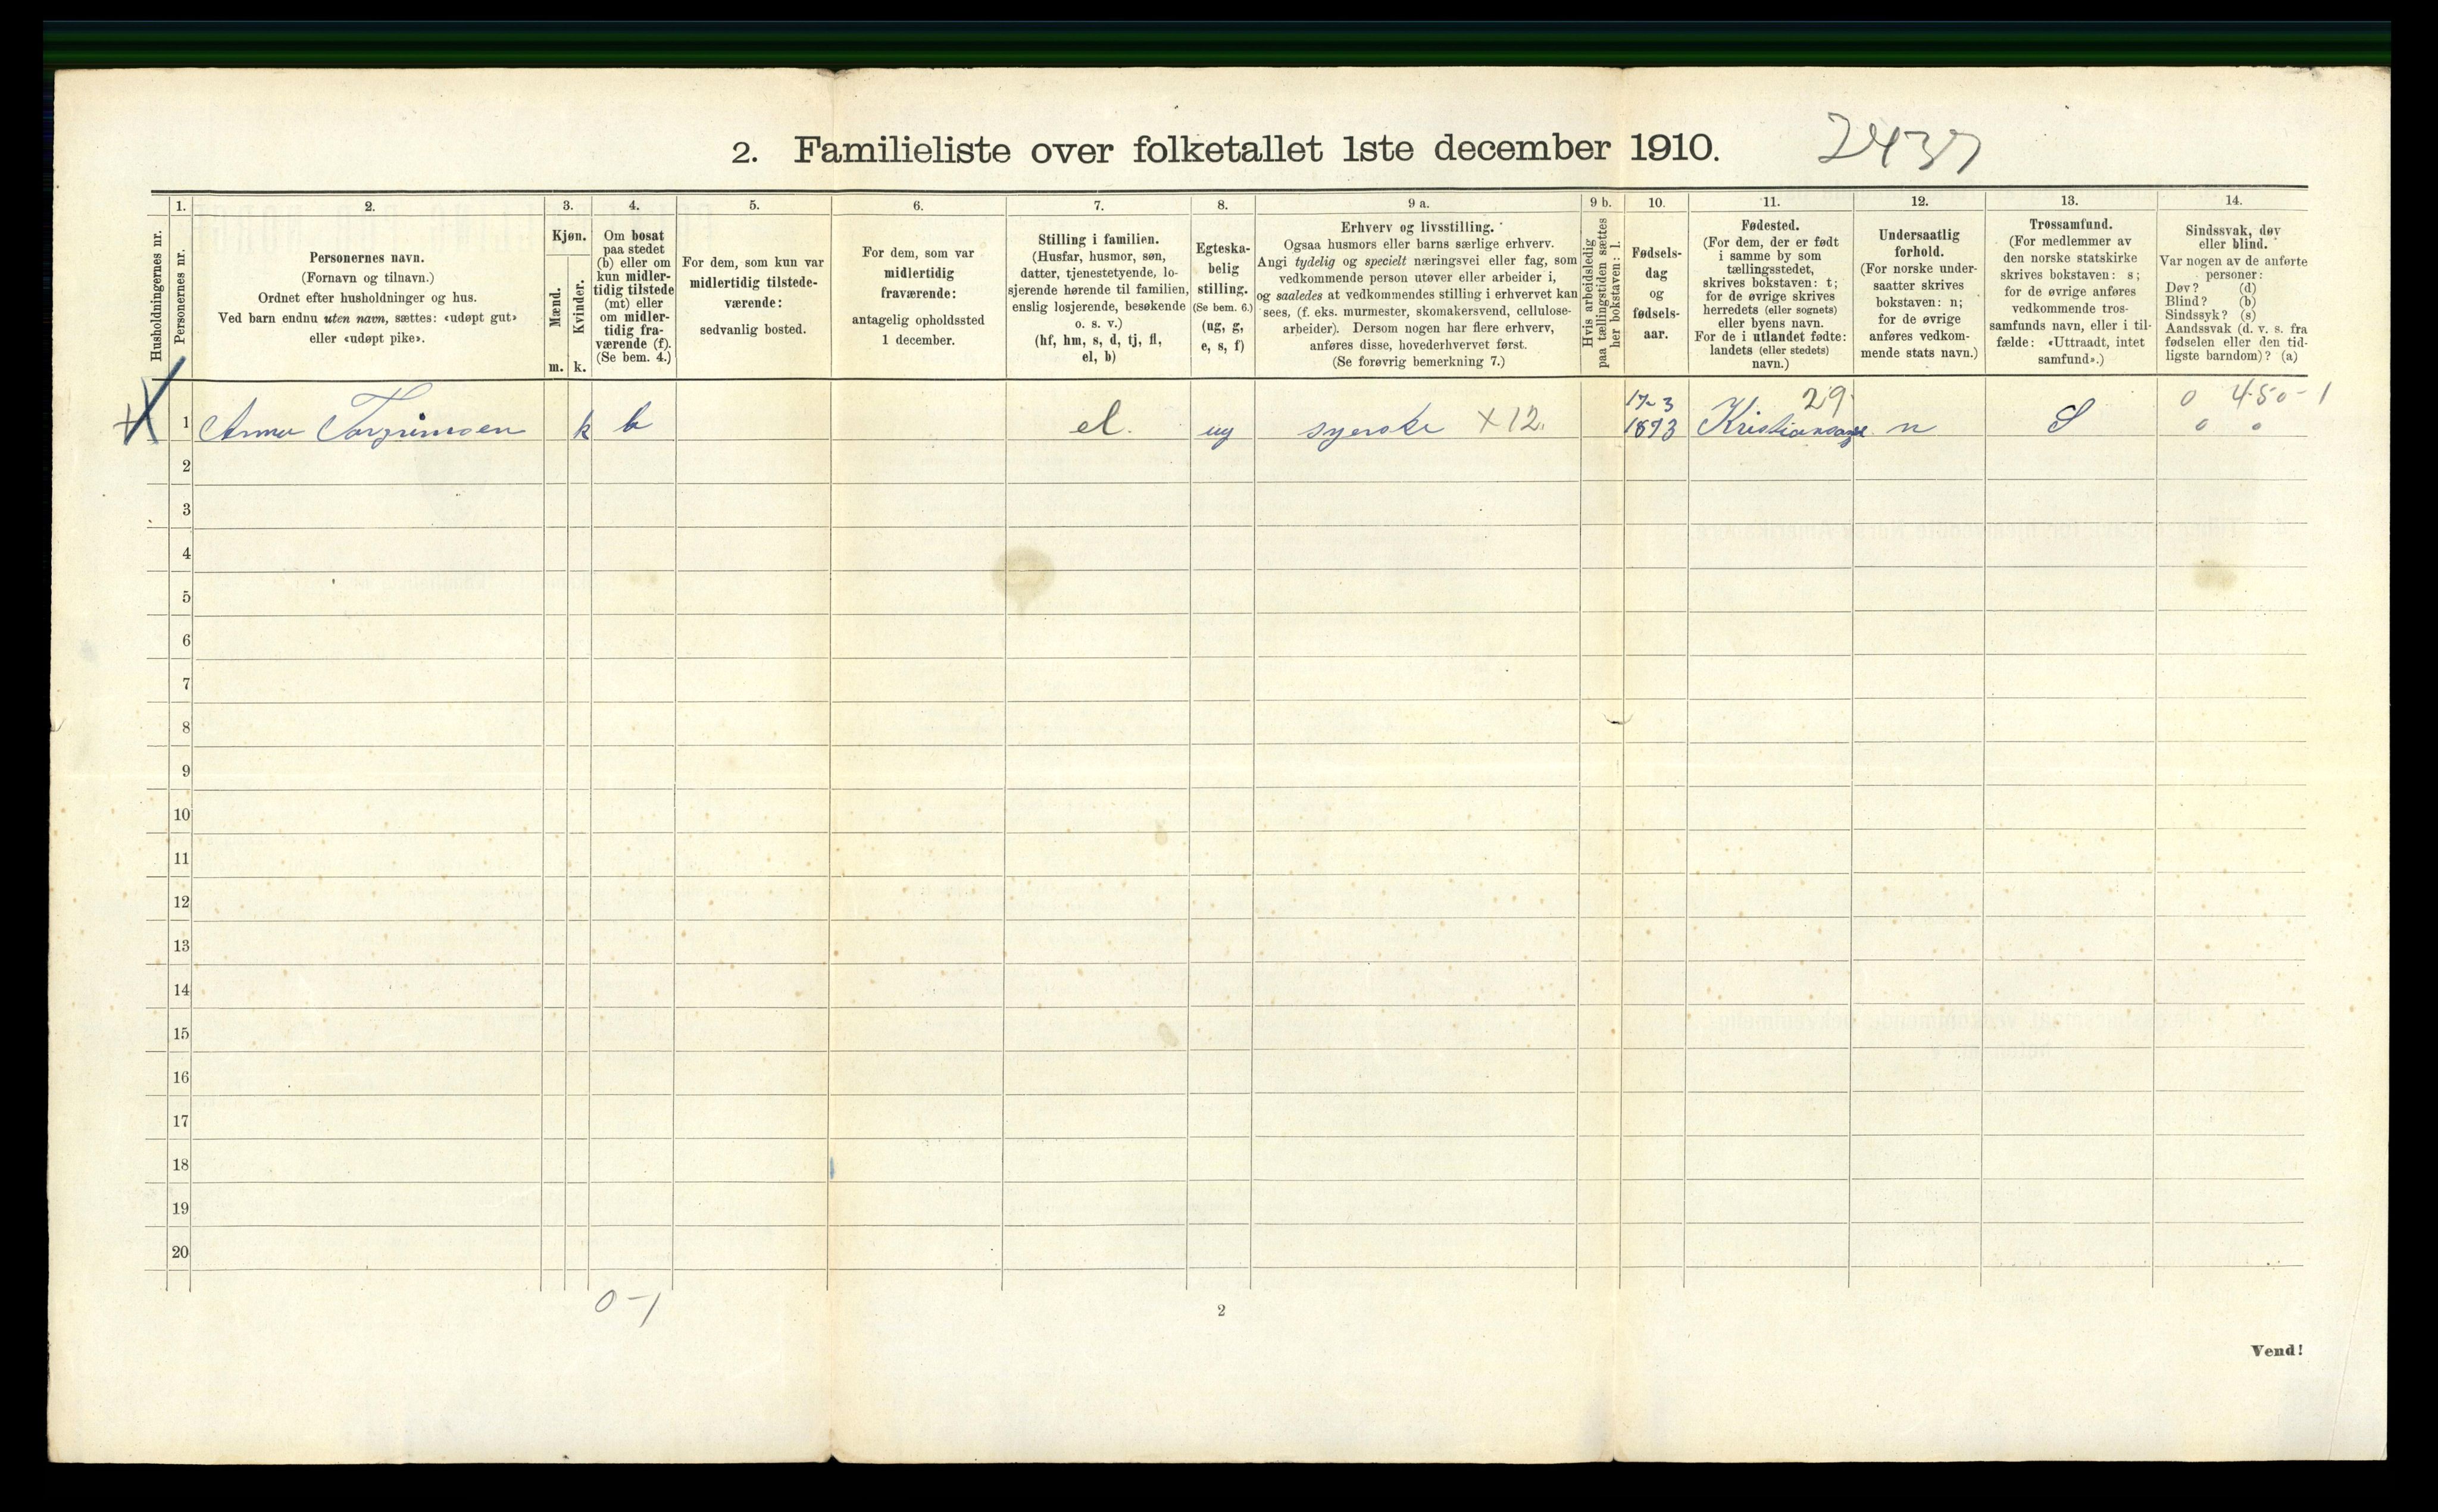 2. Familieliste over folketallet 1ste december 1910.
2437
Husholdningernes nr.
1.
Personernes nr.
2.
Personernes navn.
(Fornavn og tilnavn.)
Ordnet efter husholdninger og hus.
Ved barn endnu uten navn, sættes: «udøpt gut»
eller «udøpt pike».
3.
Kjøn.
Mænd.
m.
Kvinder.
k.
4.
Om bosat
paa stedet
(b) eller om
kun midler-
tidig tilstede
(mt) eller
om midler-
tidig fra-
værende (f).
(Se bem. 4.)
5.
For dem, som kun var
midlertidig tilstede-
værende:
sedvanlig bosted.
6.
For dem, som var
midlertidig
fraværende:
antagelig opholdssted
1 december.
7.
Stilling i familien.
(Husfar, husmor, søn,
datter, tjenestetyende, lo-
sjerende hørende til familien,
enslig losjerende, besøkende
o. s. v.)
(hf, hm, s, d, tj, fl,
el, b)
8.
Egteska-
belig
stilling.
(Se bem. 6.)
(ug, g,
e, s, f)
9 a.
Erhverv og livsstilling.
Ogsaa husmors eller barns særlige erhverv.
Angi tydelig og specielt næringsvei eller fag, som
vedkommende person utøver eller arbeider i,
og saaledes at vedkommendes stilling i erhvervet kan
sees, (f. eks. murmester, skomakersvend, cellulose-
arbeider). Dersom nogen har flere erhverv,
anføres disse, hovederhvervet først.
(Se forøvrig bemerkning 7.)
9 b.
Hvis arbeidsledig
paa tællingstiden sættes
her bokstaven: l.
10.
Fødsels-
dag
og
fødsels-
aar.
11.
Fødested.
(For dem, der er født
i samme by som
tællingsstedet,
skrives bokstaven: t;
for de øvrige skrives
herredets (eller sognets)
eller byens navn.
For de i utlandet fødte:
landets (eller stedets)
navn.)
12.
Undersaatlig
forhold.
(For norske under-
saatter skrives
bokstaven: n;
for de øvrige
anføres vedkom-
mende stats navn.)
13.
Trossamfund.
(For medlemmer av
den norske statskirke
skrives bokstaven: s;
for de øvrige anføres
vedkommende tros-
samfunds navn, eller i til-
fælde: «Uttraadt, intet
samfund».)
14.
Sindssvak, døv
eller blind.
Var nogen av de anførte
personer:
Døv? (d)
Blind? (b)
Sindssyk? (s)
Aandssvak (d. v. s. fra
fødselen eller den tid-
ligste barndom)? (a)
17-3 29. 0 450-1
1 Anna Torgrimsen k b el. ug syerske X12. 1893 Kristiansand n S 0 0
2
3
4
5
6
7
8
9
10
11
12
13
14
15
16
17
18
19
20
0-1
2
Vend!